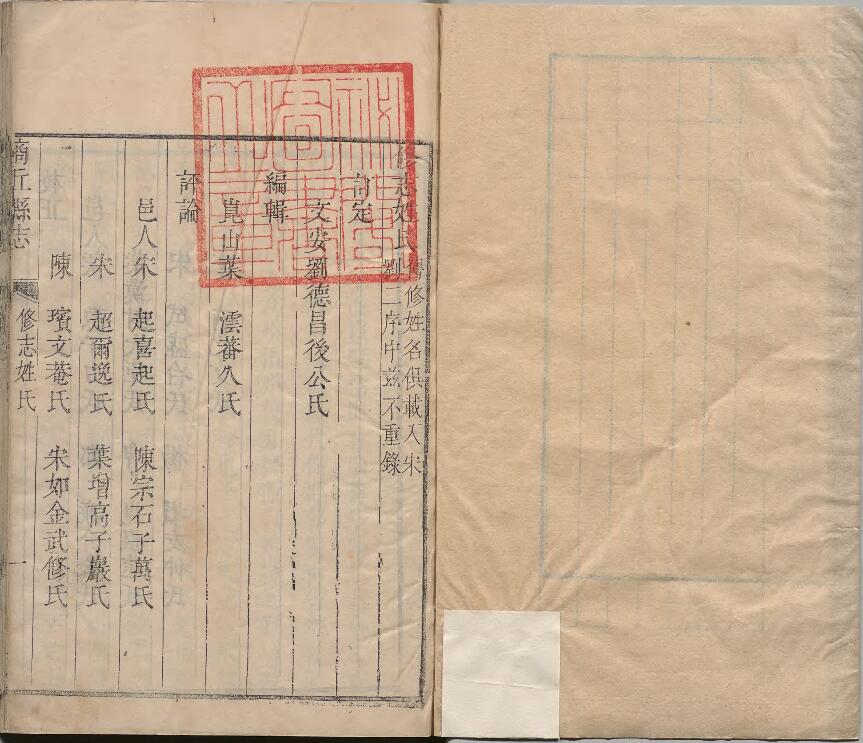 修志姓氏 舊修姓名俱載入宋
劉二序中茲不重錄
訂定
文安劉德昌後公氏
編輯
崑山葉 澐蕃久氏
評論
邑人宋 起喜起氏 陳宗石子萬氏
宋 超爾逸氏 葉增高子巖氏
陳 璸文菴氏 宋如金武修氏
商丘縣志 修志姓氏 一